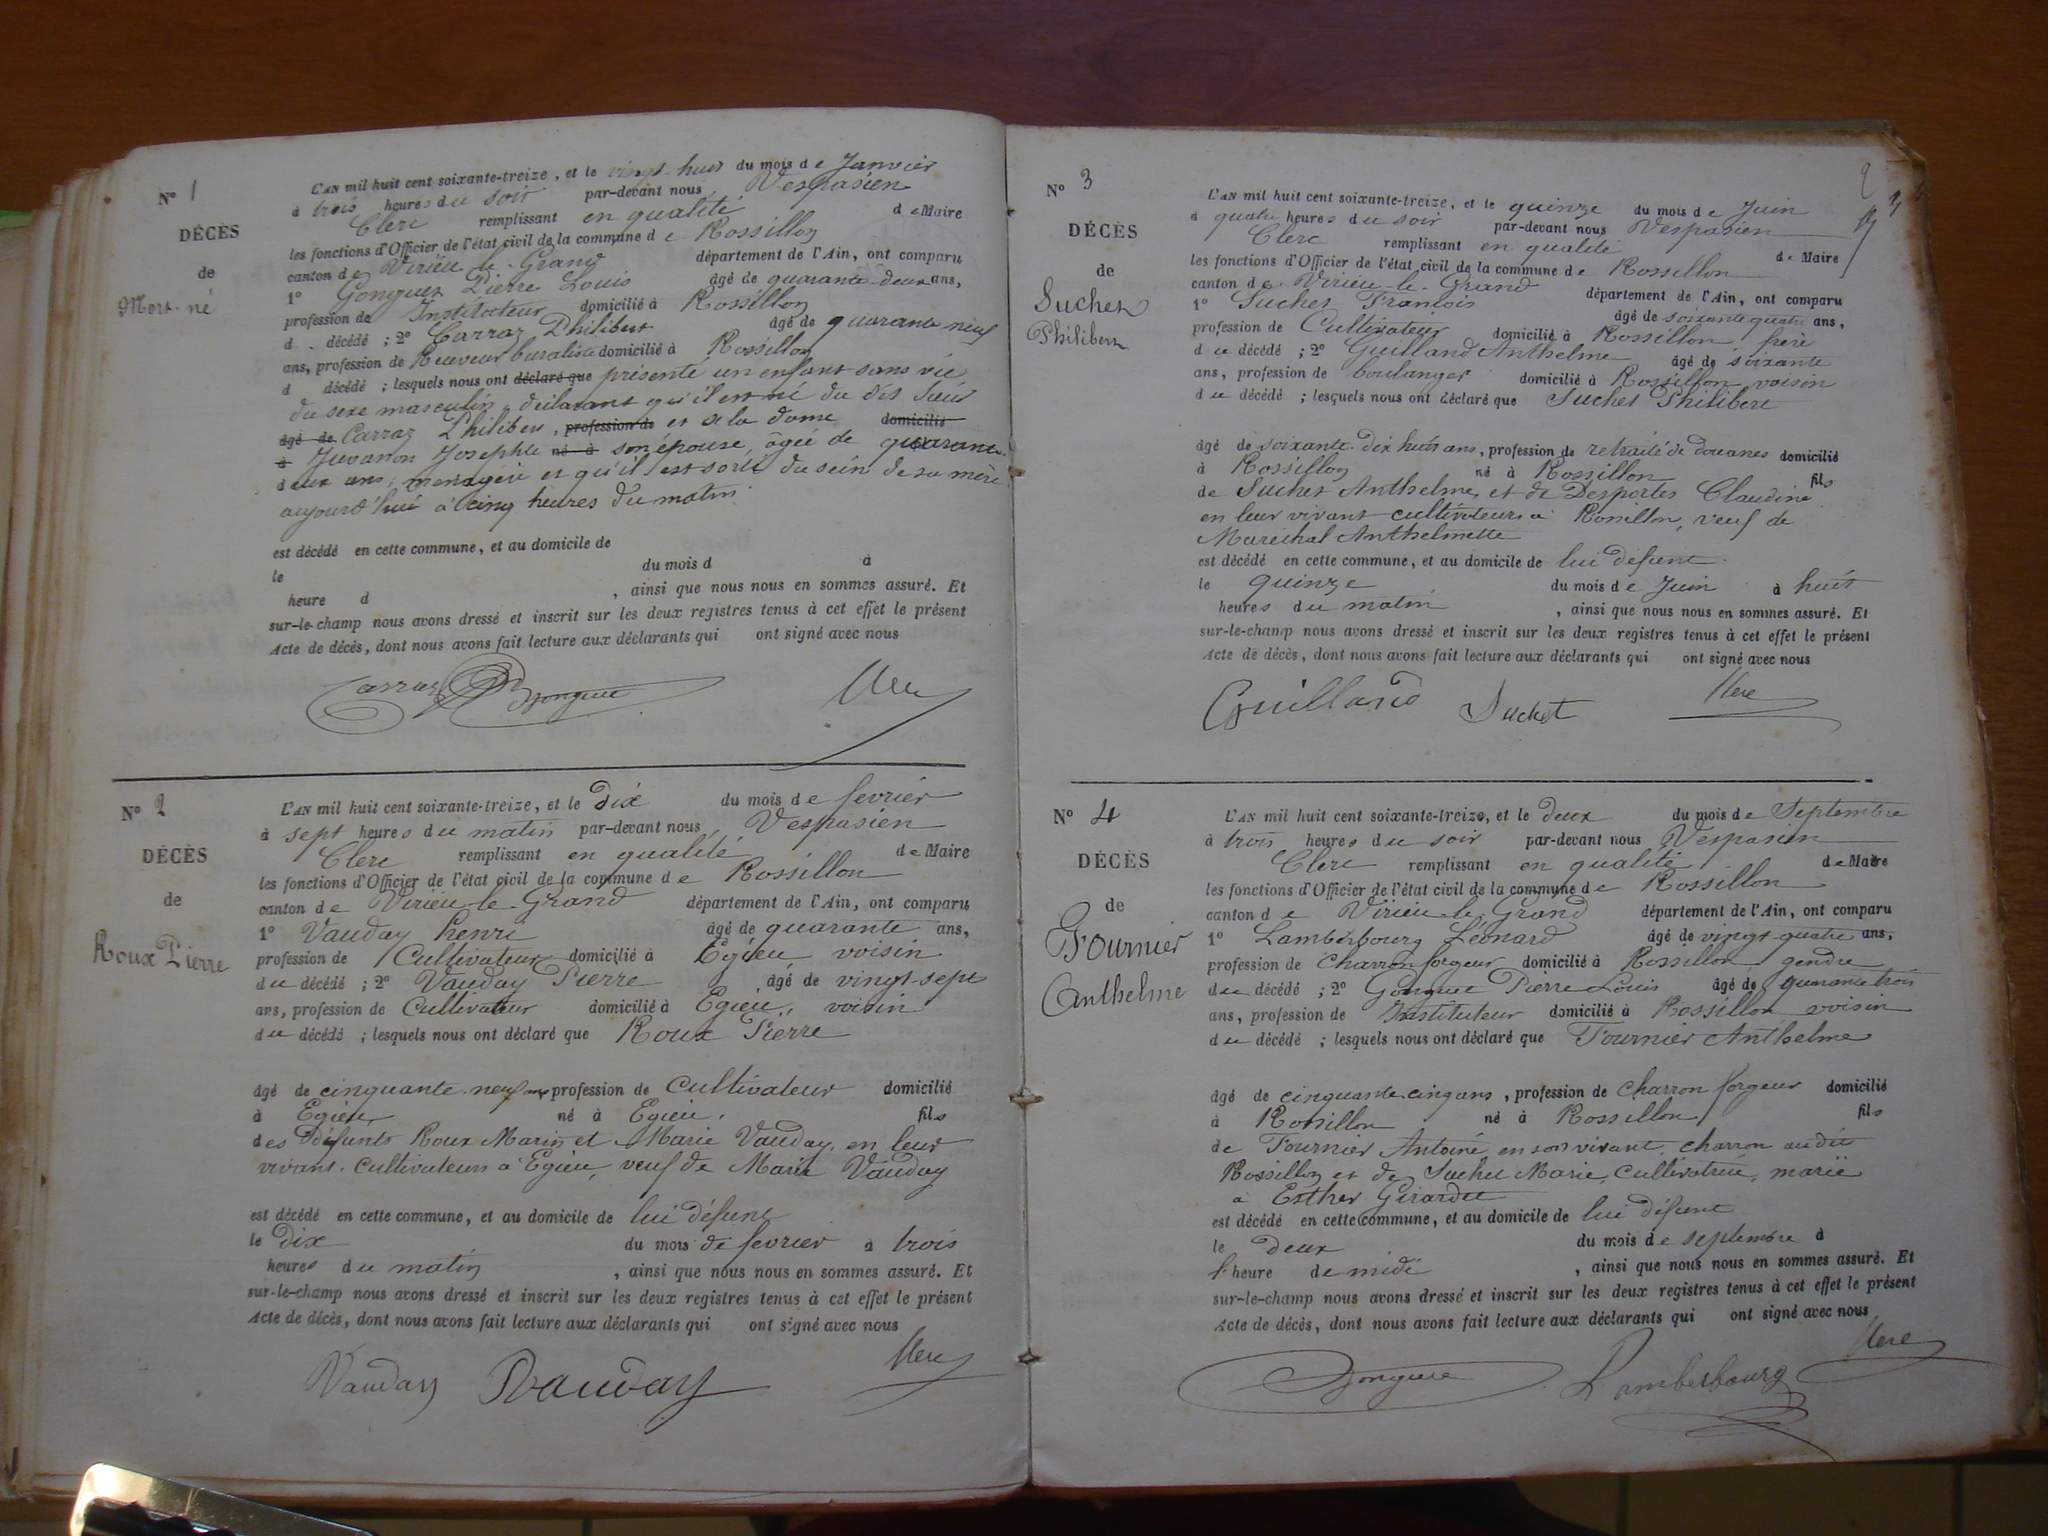 N° 1
DÉCÈS
de
Mort-né
L'AN mil huit cent soixante-treize, et le vingt-huit du mois de Janvier
à trois heures du soir par-devant nous Vespasien
Clerc remplissant en qualité de Maire
les fonctions d'Officier de l'état civil de la commune de Rossillon
canton de Virieu-le-Grand département de l'Ain, ont comparu
1° Gonguet Pierre Louis âgé de quarante-deux ans,
profession de Instituteur domicilié à Rossillon
d décédé ; 2° Carraz Philibert âgé de quarante neuf
ans, profession de Receveur buraliste domicilié à Rossillon
d décédé ; lesquels nous ont déclaré que présenté un enfant sans vie
du sexe masculin, déclarant qu'il est né du dit Sieur
âgé de Carraz Philibert, profession de et de la dame domicilié
à Juvanon Josephte né à son épouse, âgée de quarante-
deux ans, ménagère et qu'il est sorti du sein de sa mère
aujourd'hui à cinq heures du matin
est décédé en cette commune, et au domicile de
le du mois d à
heure d , ainsi que nous nous en sommes assuré. Et
sur-le-champ nous avons dressé et inscrit sur les deux registres tenus à cet effet le présent
Acte de décès, dont nous avons fait lecture aux déclarants qui ont signé avec nous
Carraz Gonguet Clerc
N° 2
DÉCÈS
de
Roux Pierre
L'AN mil huit cent soixante-treize, et le dix du mois de février
à sept heures du matin par-devant nous Vespasien
Clerc remplissant en qualité de Maire
les fonctions d'Officier de l'état civil de la commune de Rossillon
canton de Virieu-le-Grand département de l'Ain, ont comparu
1° Vauday henri âgé de quarante ans,
profession de Cultivateur domicilié à Egieu voisin
du décédé ; 2° Vauday Pierre âgé de vingt-sept
ans, profession de Cultivateur domicilié à Egieu, voisin
du décédé ; lesquels nous ont déclaré que Roux Pierre
âgé de cinquante-neuf ans profession de Cultivateur domicilié
à Egieu né à Egieu, fils
des défunts Roux Marin et Marie Vauday, en leur
vivant cultivateurs à Egieu, veuf de Marie Vauday
est décédé en cette commune, et au domicile de lui défunt
le dix du mois de février à trois
heures du matin , ainsi que nous nous en sommes assuré. Et
sur-le-champ nous avons dressé et inscrit sur les deux registres tenus à cet effet le présent
Acte de décès, dont nous avons fait lecture aux déclarants qui ont signé avec nous
Vauday PVauday Clerc
2
N° 3
DÉCÈS
de
Suchet
Philibert
L'AN mil huit cent soixante-treize, et le quinze du mois de Juin
à quatre heures du soir par-devant nous Vespasien
Clerc remplissant en qualité de Maire
les fonctions d'Officier de l'état civil de la commune de Rossillon
canton de Virieu-le-Grand département de l'Ain, ont comparu
1° Suchet François âgé de soixante quatre ans,
profession de Cultivateur domicilié à Rossillon
du décédé ; 2° Guilland Anthelme âgé de soixante
ans, profession de boulanger domicilié à Rossillon voisin
du décédé ; lesquels nous ont déclaré que Suchet Philibert
âgé de soixante-dix huit ans, profession de retraité de douanes domicilié
à Rossillon né à Rossillon fils
de Suchet Anthelme et de Desportes Claudine
en leur vivant cultivateurs à Rossillon, veuf de
Maréchal Anthelmette
est décédé en cette commune, et au domicile de lui défunt
le quinze du mois de Juin à huit
heures du matin , ainsi que nous nous en sommes assuré. Et
sur-le-champ nous avons dressé et inscrit sur les deux registres tenus à cet effet le présent
Acte de décès, dont nous avons fait lecture aux déclarants qui ont signé avec nous
Guilland Suchet Clerc
N° 4
DÉCÈS
de
Fournier
Anthelme
L'AN mil huit cent soixante-treize, et le deux du mois de Septembre
à trois heures du soir par-devant nous Vespasien
Clerc remplissant en qualité de Maire
les fonctions d'Officier de l'état civil de la commune de Rossillon
canton de Virieu-le-Grand département de l'Ain, ont comparu
1° Lamberbourg Léonard âgé de vingt-quatre ans,
profession de charron forgeur domicilié à Rossillon gendre
du décédé ; 2° Gonguet Pierre Louis âgé de quarante trois
ans, profession de Instituteur domicilié à Rossillon voisin
du décédé ; lesquels nous ont déclaré que Fournier Anthelme
âgé de cinquante cinq ans, profession de charron forgeur domicilié
à Rossillon né à Rossillon fils
de Fournier Antoine en son vivant charron audit
Rossillon et de Suchet Marie, cultivatrice, marié
à Esther Girardet
est décédé en cette commune, et au domicile de lui défunt
le deux du mois de septembre à
l'heure de midi , ainsi que nous nous en sommes assuré. Et
sur-le-champ nous avons dressé et inscrit sur les deux registres tenus à cet effet le présent
Acte de décès, dont nous avons fait lecture aux déclarants qui ont signé avec nous
Gonguet Lamberbourg Clerc